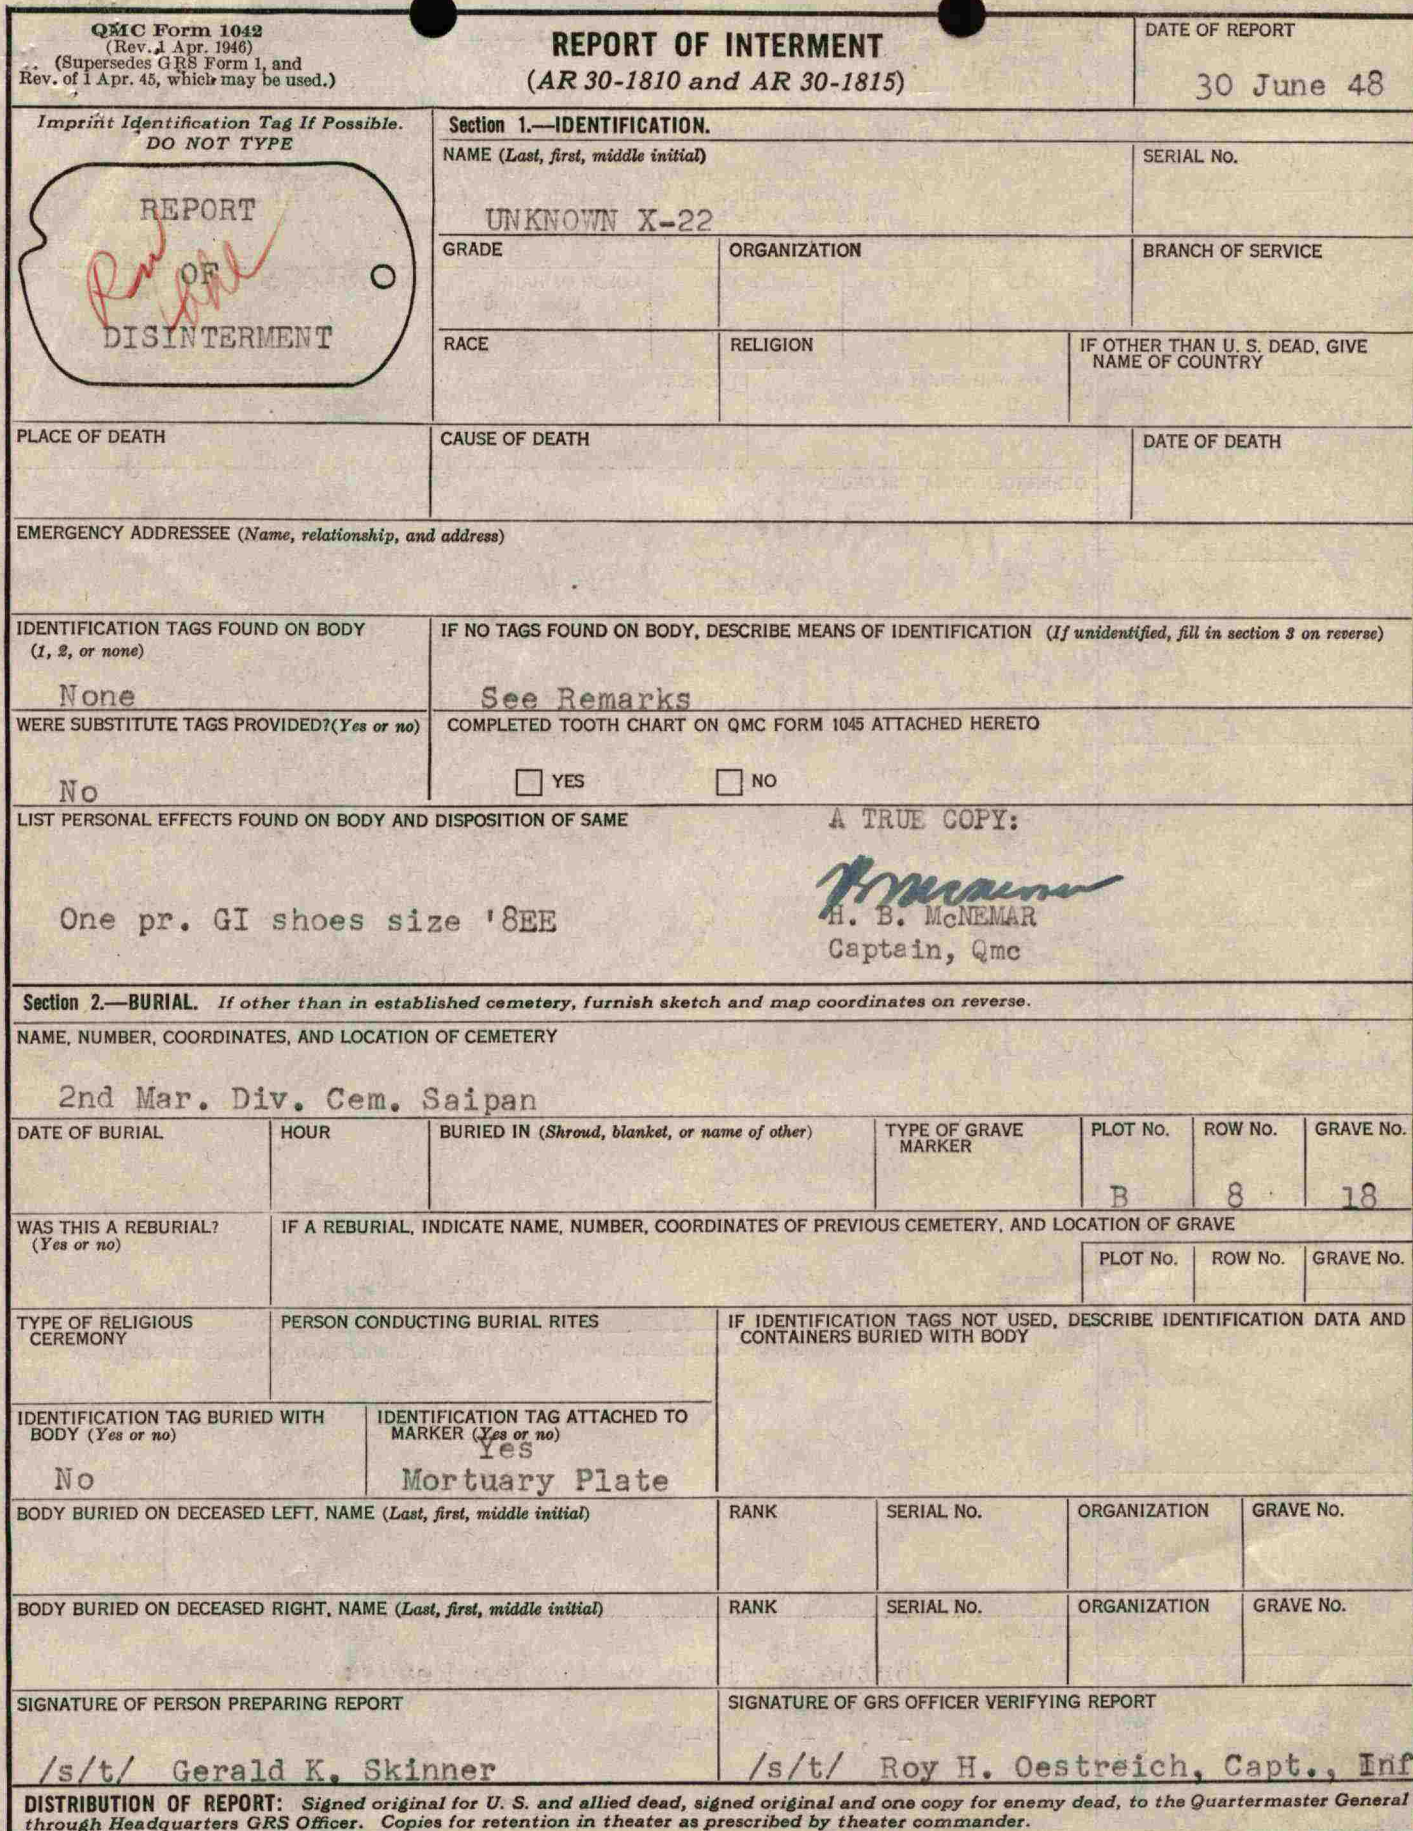 QMC Form 1042
(Rev. 1 Apr. 1946)
(Supersedes GRS Form 1, and
Rev. of 1 Apr. 45, which may be used.)
REPORT OF INTERMENT
(AR 30-1810 and AR 30-1815)
DATE OF REPORT
30 June 48
Imprint Identification Tag If Possible.
DO NOT TYPE
REPORT
OF
DISINTERMENT
Section 1.—IDENTIFICATION.
NAME (Last, first, middle initial)
UNKNOWN X-22
SERIAL No.
GRADE
ORGANIZATION
BRANCH OF SERVICE
RACE
RELIGION
IF OTHER THAN U. S. DEAD, GIVE
NAME OF COUNTRY
PLACE OF DEATH
CAUSE OF DEATH
DATE OF DEATH
EMERGENCY ADDRESSEE (Name, relationship, and address)
IDENTIFICATION TAGS FOUND ON BODY
(1, 2, or none)
None
IF NO TAGS FOUND ON BODY, DESCRIBE MEANS OF IDENTIFICATION (If unidentified, fill in section 3 on reverse)
See Remarks
WERE SUBSTITUTE TAGS PROVIDED?(Yes or no)
No
COMPLETED TOOTH CHART ON QMC FORM 1045 ATTACHED HERETO
YES NO
LIST PERSONAL EFFECTS FOUND ON BODY AND DISPOSITION OF SAME
One pr. GI shoes size '8EE
A TRUE COPY:
H. B. McNEMAR
Captain, Qmc
Section 2.—BURIAL. If other than in established cemetery, furnish sketch and map coordinates on reverse.
NAME, NUMBER, COORDINATES, AND LOCATION OF CEMETERY
2nd Mar. Div. Cem. Saipan
DATE OF BURIAL
HOUR
BURIED IN (Shroud, blanket, or name of other)
TYPE OF GRAVE
MARKER
PLOT No.
B
ROW No.
8
GRAVE No.
18
WAS THIS A REBURIAL?
(Yes or no)
IF A REBURIAL, INDICATE NAME, NUMBER, COORDINATES OF PREVIOUS CEMETERY, AND LOCATION OF GRAVE
PLOT No.
ROW No.
GRAVE No.
TYPE OF RELIGIOUS
CEREMONY
PERSON CONDUCTING BURIAL RITES
IF IDENTIFICATION TAGS NOT USED, DESCRIBE IDENTIFICATION DATA AND
CONTAINERS BURIED WITH BODY
IDENTIFICATION TAG BURIED WITH
BODY (Yes or no)
No
IDENTIFICATION TAG ATTACHED TO
MARKER (Yes or no)
Yes
Mortuary Plate
BODY BURIED ON DECEASED LEFT, NAME (Last, first, middle initial)
RANK
SERIAL No.
ORGANIZATION
GRAVE No.
BODY BURIED ON DECEASED RIGHT, NAME (Last, first, middle initial)
RANK
SERIAL No.
ORGANIZATION
GRAVE No.
SIGNATURE OF PERSON PREPARING REPORT
/s/t/ Gerald K. Skinner
SIGNATURE OF GRS OFFICER VERIFYING REPORT
/s/t/ Roy H. Oestreich, Capt., Inf
DISTRIBUTION OF REPORT: Signed original for U. S. and allied dead, signed original and one copy for enemy dead, to the Quartermaster General
through Headquarters GRS Officer. Copies for retention in theater as prescribed by theater commander.